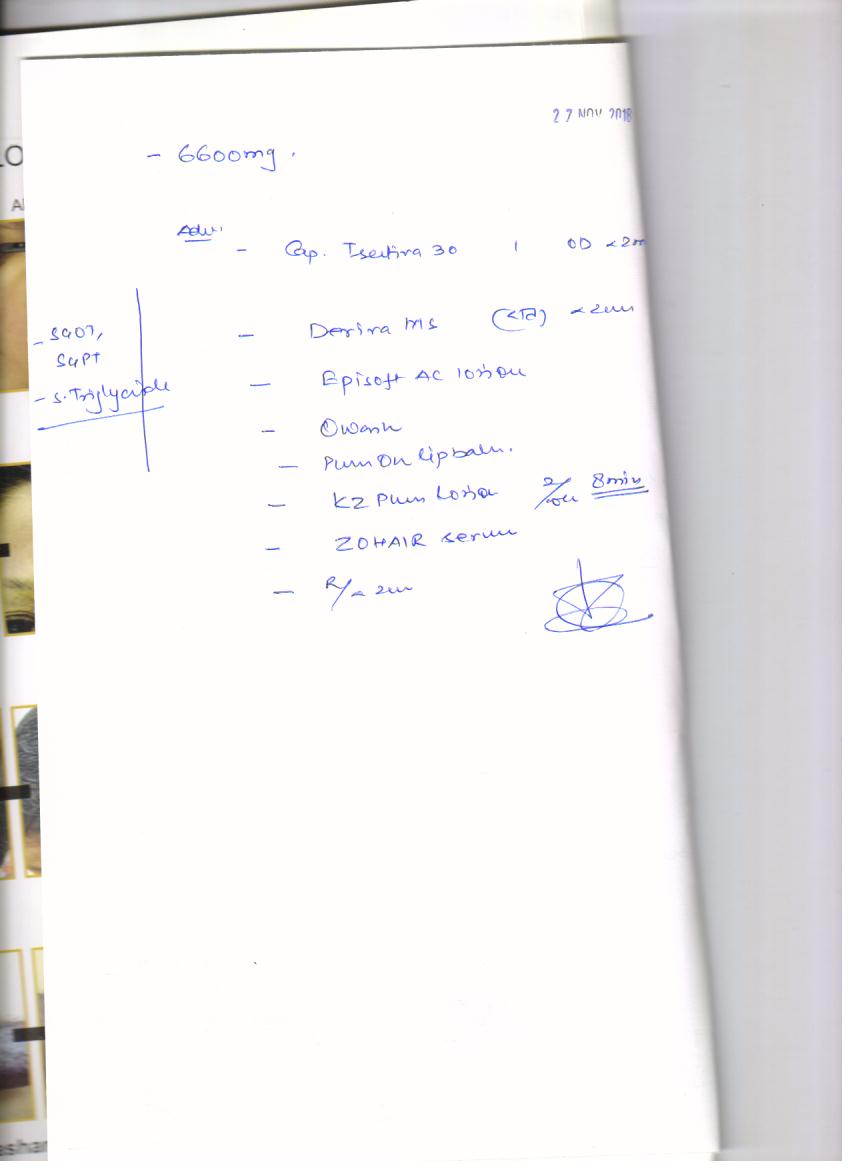 27 NOV 2018
- 6600mg.
Adv:
- Cap. Isotira 30 1 OD x 2m
- SGOT,
SGPT
- S. Triglyceride
- Deriva MS x 2m
- Episoft AC lotion
- Owash
- lip balm.
- KZ Plus Lotion 8min
- ZOHAIR serum
- R/A 2m